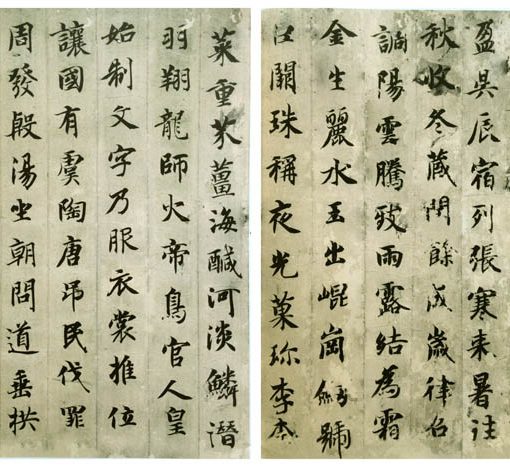 盈昃辰宿列張寒来暑往
秋收冬藏閏餘成歲律召
調陽雲騰致雨露結為霜
金生麗水玉出崐崗劒號
巨闕珠稱夜光菓珎李柰
菜重芥薑海醎河淡鱗潛
羽翔龍師火帝鳥官人皇
始制文字乃服衣裳推位
讓國有虞陶唐吊民伐罪
周發殷湯坐朝問道垂拱